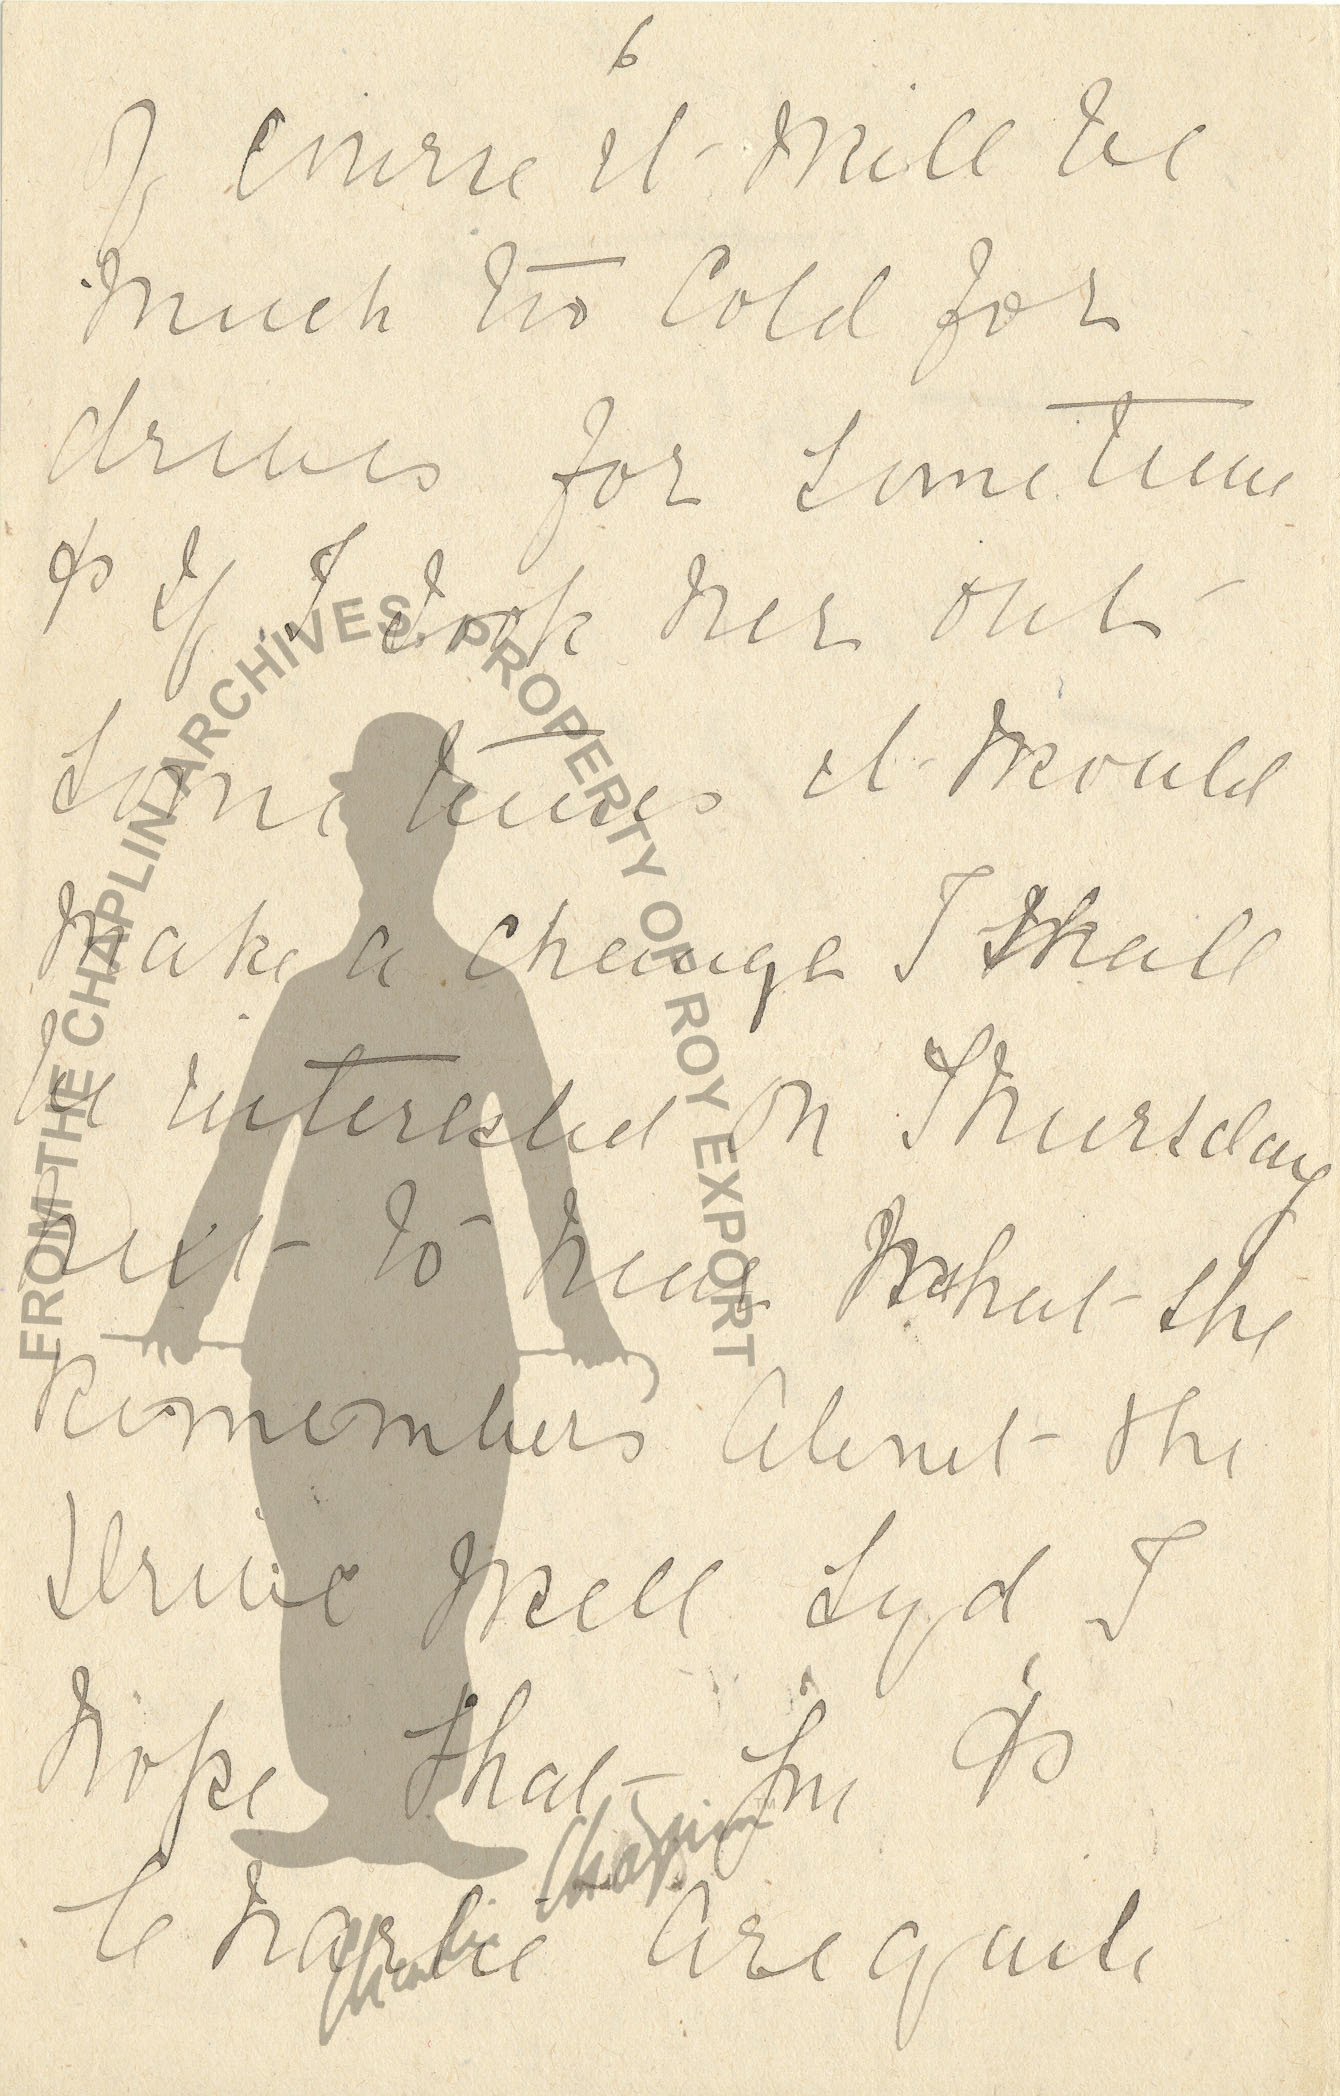 6
Of course it will be
much too Cold for
drives for sometime
& If I took her out
Some times it would
make a change I shall
be interested on Thursday
next to hear what she
Remembers About the
Drive Well Syd I
hope that you &
Charlie Are quite
FROM THE CHAPLIN ARCHIVES, PROPERTY OF ROY EXPORT
Charlie Chaplin